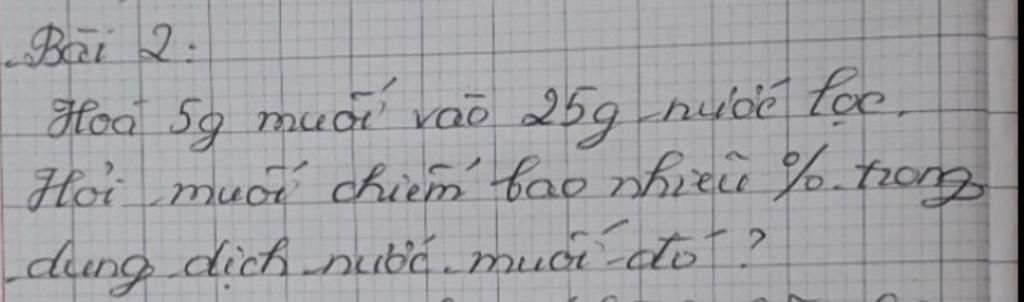 Bài 2:
Hoà 5g muối vào 25g nước lọc.
Hỏi muối chiếm bao nhiêu % trong
dung dịch nước muối đó?